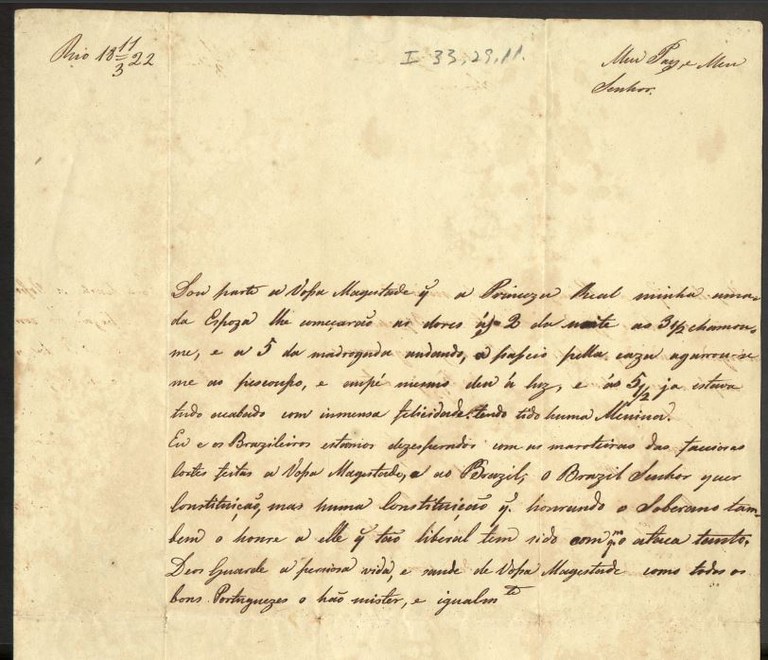 Rio 18 11/3 22
I-33,29,11.
Meu Pay, e Meu
Senhor.
Dou parte a Vossa Magestade q̃ a Princeza Real minha ama-
da Espoza lhe começarão as dores ás 2 da noite as 3 1/2 chamou-
me, e a 5 da madrogada andando, a passeio pella caza agarrou-se
me ao pescosso, e empé mesmo deu á luz, e ás 5 1/2 ja estava
tudo acabado com immensa felicidade, tendo tido huma Menina.
Eu e os Brazileiros estamos dezesperados com as maroteiras das facciosas
Cortes feitas a Vossa Magestade, e ao Brazil; o Brazil Senhor quer
Constituição, mas huma Constituição q̃. honrando o Soberano tam-
bem o honre a elle q̃ tão liberal tem sido com q.m o ataca tanto.
Deos Guarde a percioza vida, e saude de Vossa Magestade como todos os
bons Portuguezes o hão mister, e igualm.te